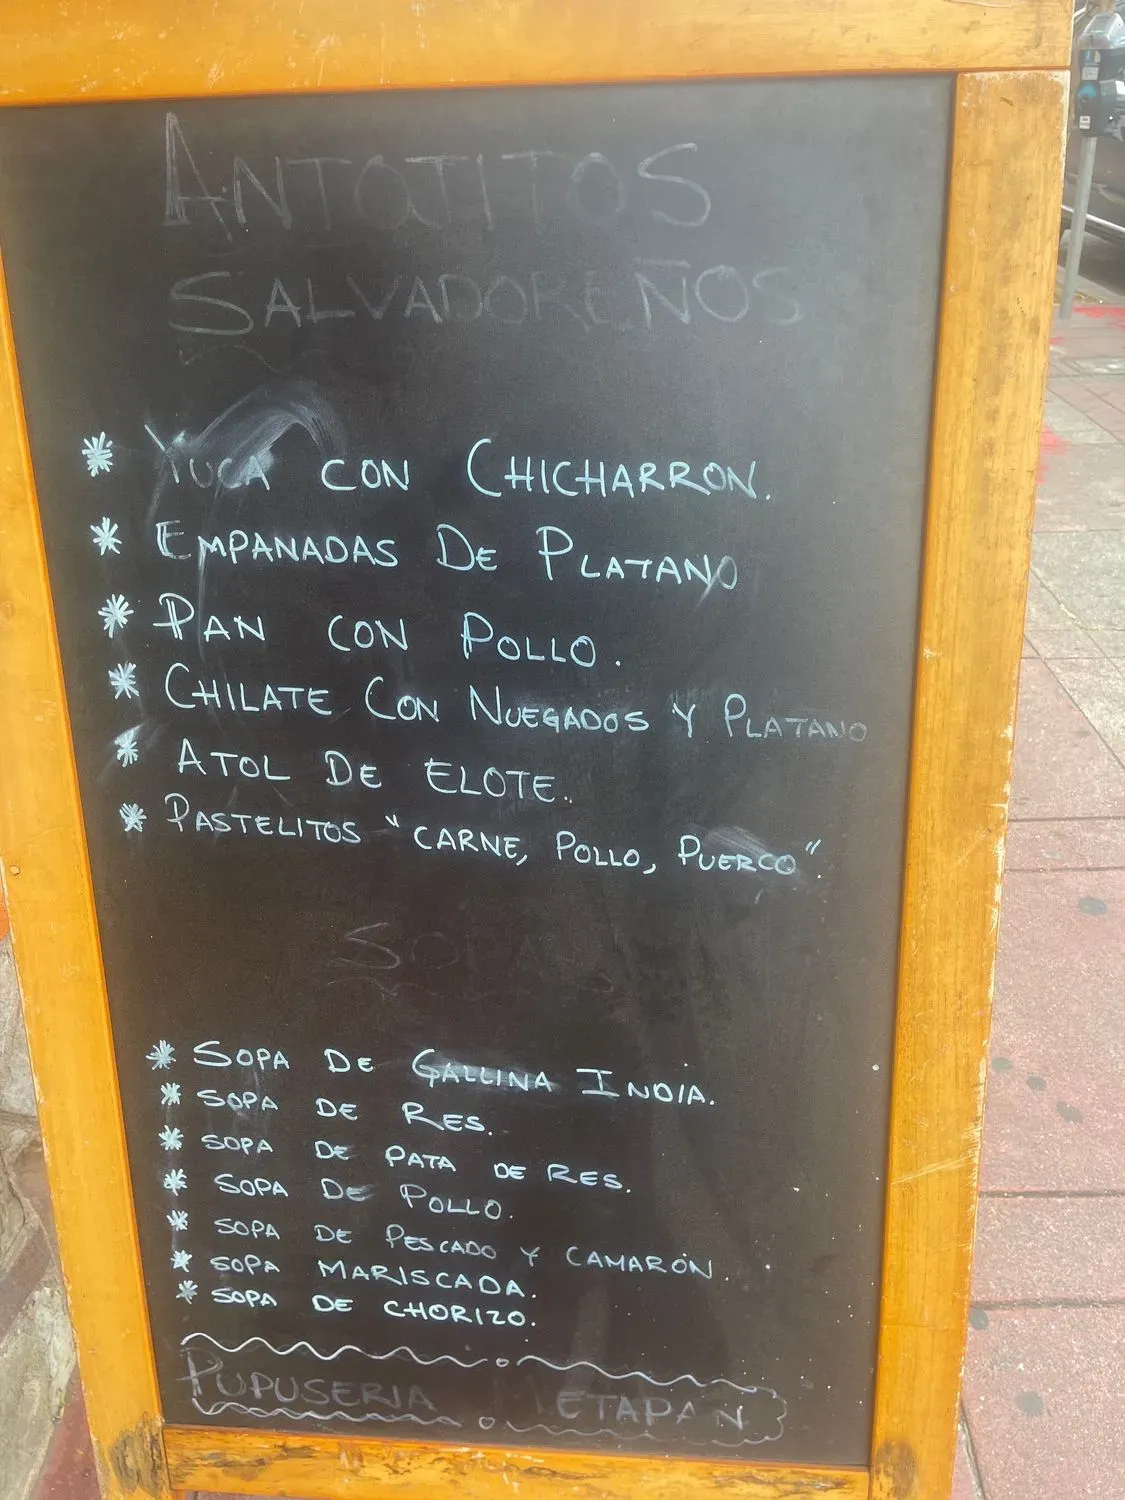 ANTOJITOS
SALVADOREÑOS
* YUCA CON CHICHARRON.
* EMPANADAS DE PLATANO
* PAN CON POLLO.
* CHILATE CON NUEGADOS Y PLATANO
* ATOL DE ELOTE.
* PASTELITOS "CARNE, POLLO, PUERCO".
SOPAS
* SOPA DE GALLINA INDIA.
* SOPA DE RES.
* SOPA DE PATA DE RES.
* SOPA DE POLLO.
* SOPA DE PESCADO Y CAMARÓN.
* SOPA MARISCADA.
* SOPA DE CHORIZO.
PUPUSERIA METAPAN